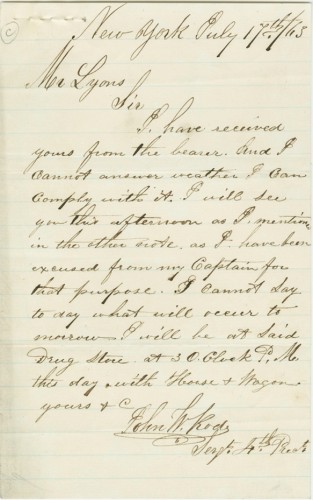 C
New York July 17th/63
Mr Lyons
Sir
I have received
yours from the bearer. And I
cannot answer weather I can
Comply with it. I will see
you this afternoon as I mention
in the other note. as I have been
excused from my Captain for
that purpose. I cannot say
to day what will occur to
morrow I will be at said
Drug Store at 3 O.Clock P. M.
this day with Horse & Wagon
yours & C
John W.
Sergt. 4th